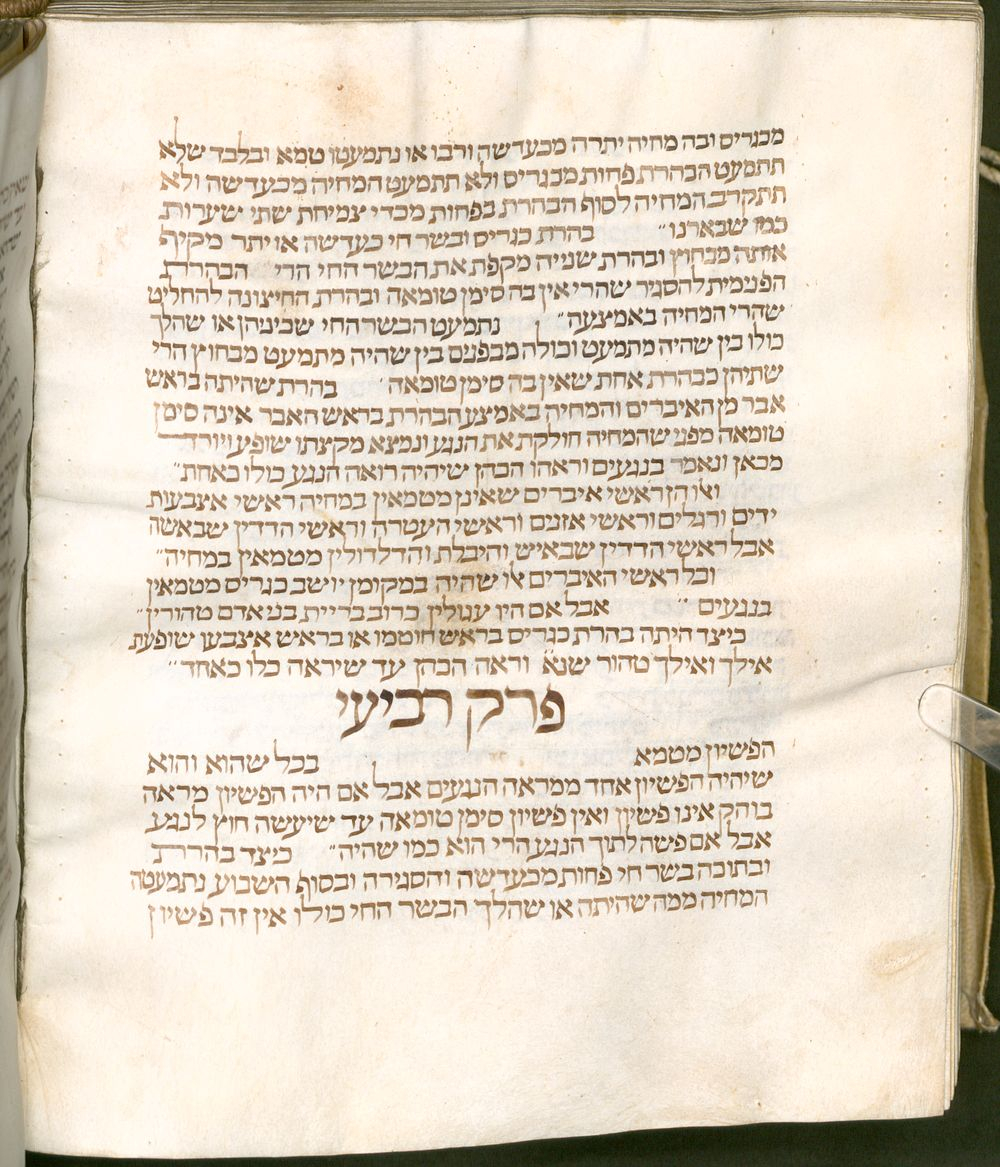 מכגריס ובה מחיה יתרה מכעדשה ורבו או נתמעטו טמא ובלבד שלא
תתמעט הבהרת פחות מכגריס ולא תתמעט המחיה מכעדשה ולא
תתקרב המחיה לסוף הבהרת בפחות מכדי צמיחת שתי שערות
כמו שבארנו״ בהרת כגריס ובשר חי כעדשה או יתר מקיף
אותה מבחוץ ובהרת שנייה מקפת את הבשר החי הרי הבהרת
הפנימית להסגיר שהרי אין בה סימן טומאה ובהרת החיצונה להחליט
שהרי המחיה באמצעה״ נתמעט הבשר החי שביניהן או שהלך
כולו בין שהיה מתמעט וכולה מבפנים בין שהיה מתמעט מבחוץ הרי
שתיהן כבהרת אחת שאין בה סימן טומאה בהרת שהיתה בראש
אבר מן האיברים והמחיה באמצע הבהרת בראש האבר אינה סימן
טומאה מפני שהמחיה חולקת את הנגע ונמצא מקצתו שופע ויורד
מכאן ונאמר בנגעים וראהו הכהן שיהיה רואה הנגע כולו כאחת״
ואלו הן ראשי איברים שאינן מטמאין במחיה ראשי אצבעות
ידים ורגלים וראשי אזנים וראשי העטרה וראשי הדדין שבאשה
אבל ראשי הדדין שבאיש והיבלת והדלדולין מטמאין במחיה״
וכל ראשי האיברים אלו שהיה במקומן יושב כגריס מטמאין
בנגעים ״ אבל אם היו עגולין כרוב בריית בני אדם טהורין״
כיצד היתה בהרת כגריס בראש חוטמו או בראש אצבעו שופעת
אילך ואילך טהור שנא׳ וראה הכהן עד שיראה כלו כאחד״
פרק רביעי
הפשיון מטמא בכל שהוא והוא
שיהיה הפשיון אחד ממראה הנגעים אבל אם היה הפשיון מראה
בוהק אינו פשיון ואין פשיון סימן טומאה עד שיעשה חוץ לנגע
אבל אם פשה לתוך הנגע הרי הוא כמו שהיה״ כיצד בהרת
ובתוכה בשר חי פחות מכעדשה והסגירה ובסוף השבוע נתמעטה
המחיה ממה שהיתה או שהלך הבשר החי כולו אין זה פשיון